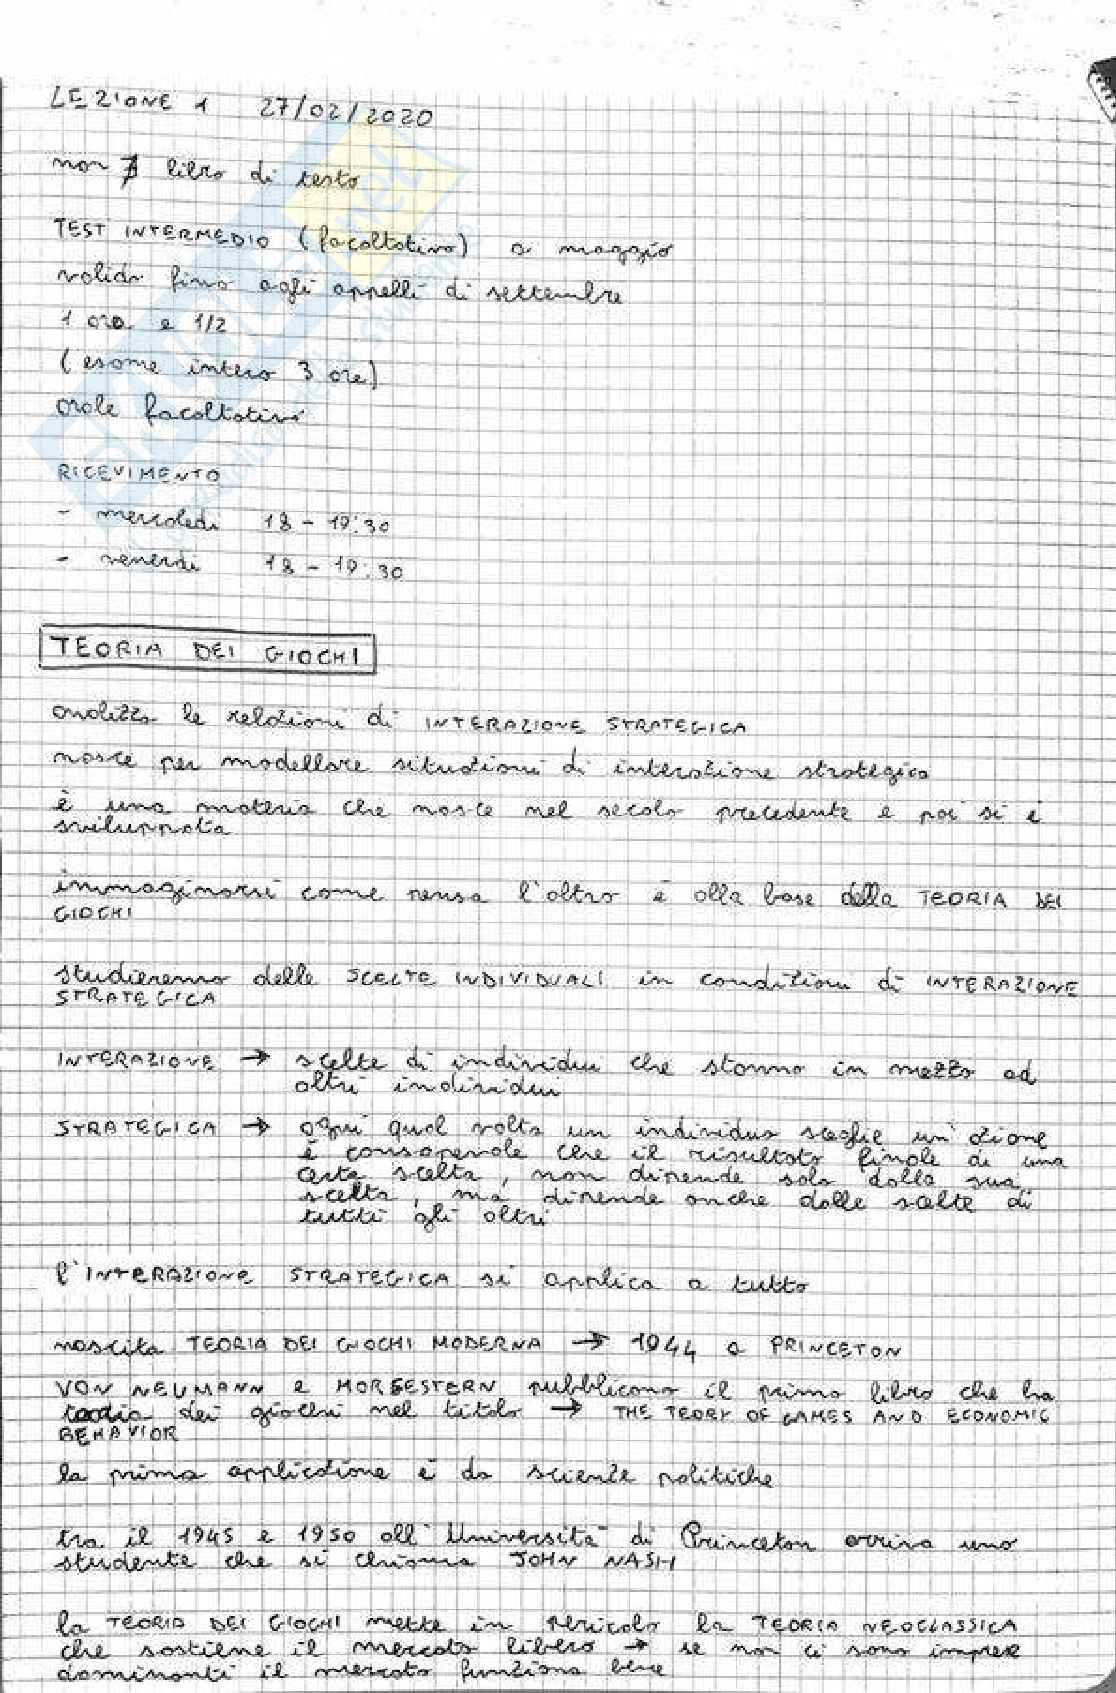 LEZIONE 1 27/02/2020
non ∄ libro di testo
TEST INTERMEDIO (facoltativo) a maggio
valido fino agli appelli di settembre
1 ora e 1/2
(esame intero 3 ore)
orale facoltativo
RICEVIMENTO
- mercoledì 18 - 19:30
- venerdì 18 - 19:30
TEORIA DEI GIOCHI
analizza le relazioni di INTERAZIONE STRATEGICA
nasce per modellare situazioni di interazione strategica
è una materia che nasce nel secolo precedente e poi si è
sviluppata
immaginarsi come pensa l'altro è alla base della TEORIA DEI
GIOCHI
studieremo delle SCELTE INDIVIDUALI in condizioni di INTERAZIONE
STRATEGICA
INTERAZIONE → scelte di individui che stanno in mezzo ad
altri individui
STRATEGICA → ogni qual volta un individuo sceglie un'azione
è consapevole che il risultato finale di una
certa scelta, non dipende solo dalla sua
scelta, ma dipende anche dalle scelte di
tutti gli altri
l'INTERAZIONE STRATEGICA si applica a tutto
nascita TEORIA DEI GIOCHI MODERNA → 1944 a PRINCETON
VON NEUMANN e MORGESTERN pubblicano il primo libro che ha
teoria dei giochi nel titolo → THE TEORY OF GAMES AND ECONOMIC
BEHAVIOR
la prima applicazione è da scienze politiche
tra il 1945 e 1950 all'Università di Princeton arriva uno
studente che si chiama JOHN NASH
la TEORIA DEI GIOCHI mette in pericolo la TEORIA NEOCLASSICA
che sostiene il mercato libero → se non ci sono imprese
dominanti il mercato funziona bene